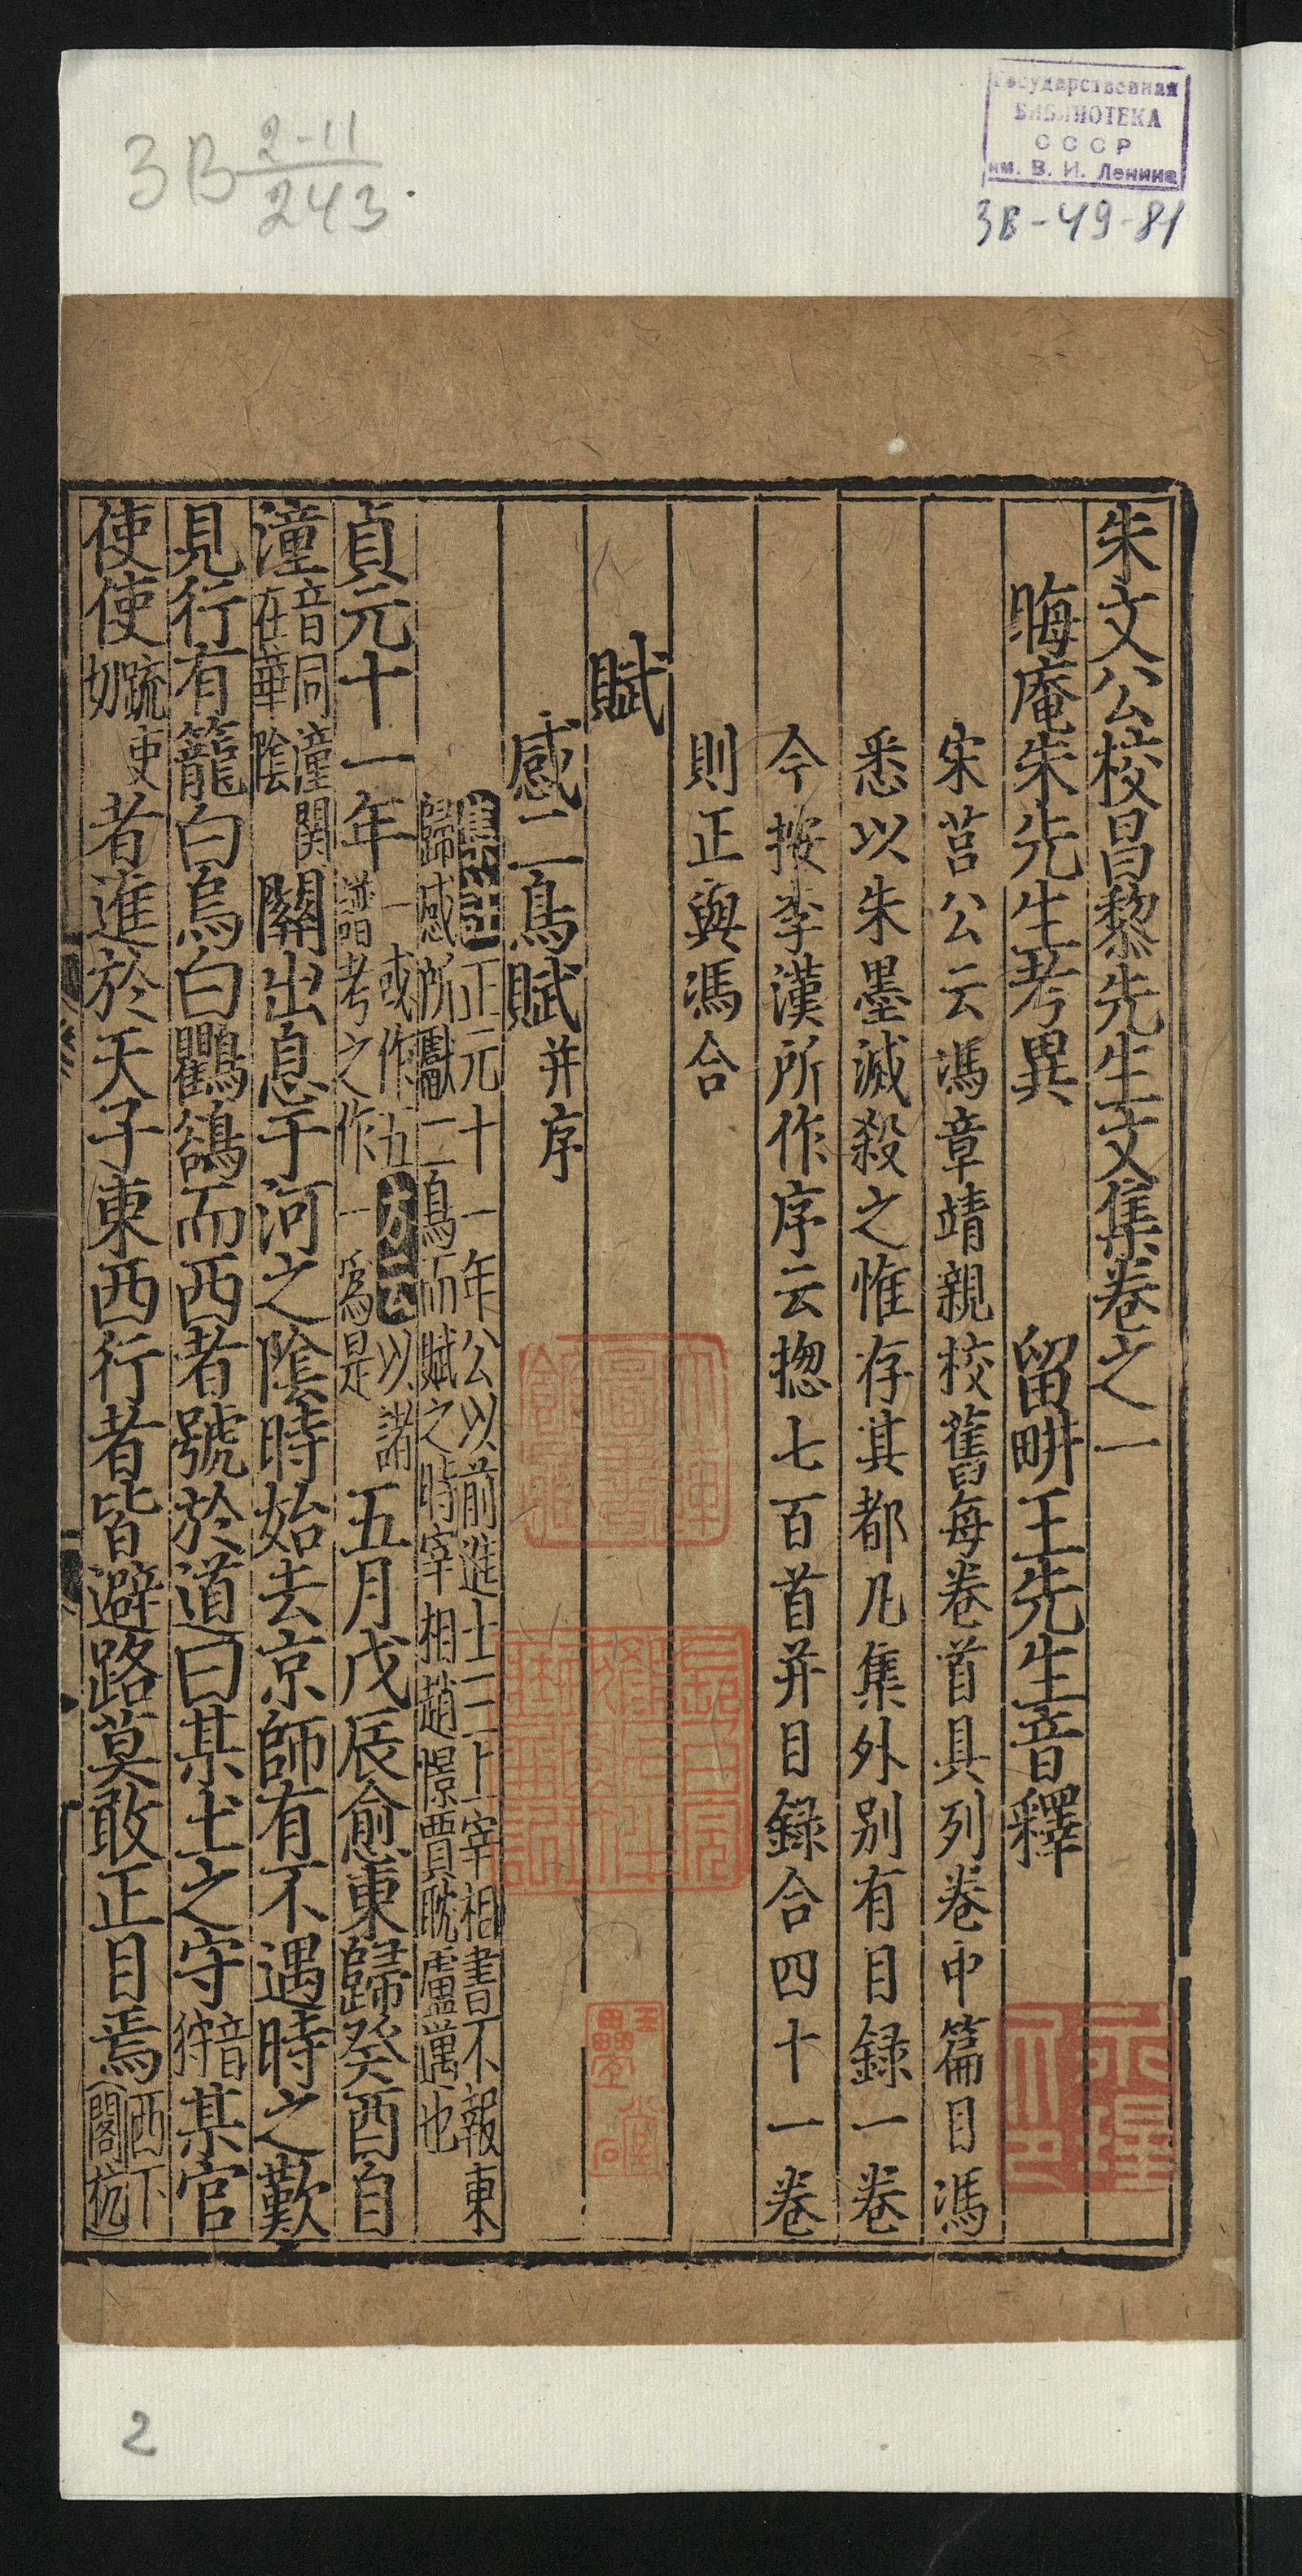 3В 2-11
243.
Государственная
БИБЛИОТЕКА
СССР
им. В. И. Ленина
3В-49-81
朱文公校昌黎先生文集卷之一
晦庵朱先生考異 留畊王先生音釋
宋莒公云馮章靖親校舊每卷首具列卷中篇目馮
悉以朱墨滅殺之惟存其都凡集外別有目録一卷
今按李漢所作序云揔七百首并目録合四十一卷
則正與馮合
賦
感二鳥賦并序
集註正元十一年公以前進士三上宰相書不報東
歸感所獻二鳥而賦之時宰相趙憬賈耽盧邁也
貞元十一年一或作五方云以諸譜考之作一爲是五月戊辰愈東歸癸酉自
潼音同潼関在華陰關出息于河之陰時始去京師有不遇時之歎
見行有籠白烏白鸜鵒而西者號於道曰某土之守音狩某官
使使疏吏切者進於天子東西行者皆避路莫敢正目焉西下閣杭
2